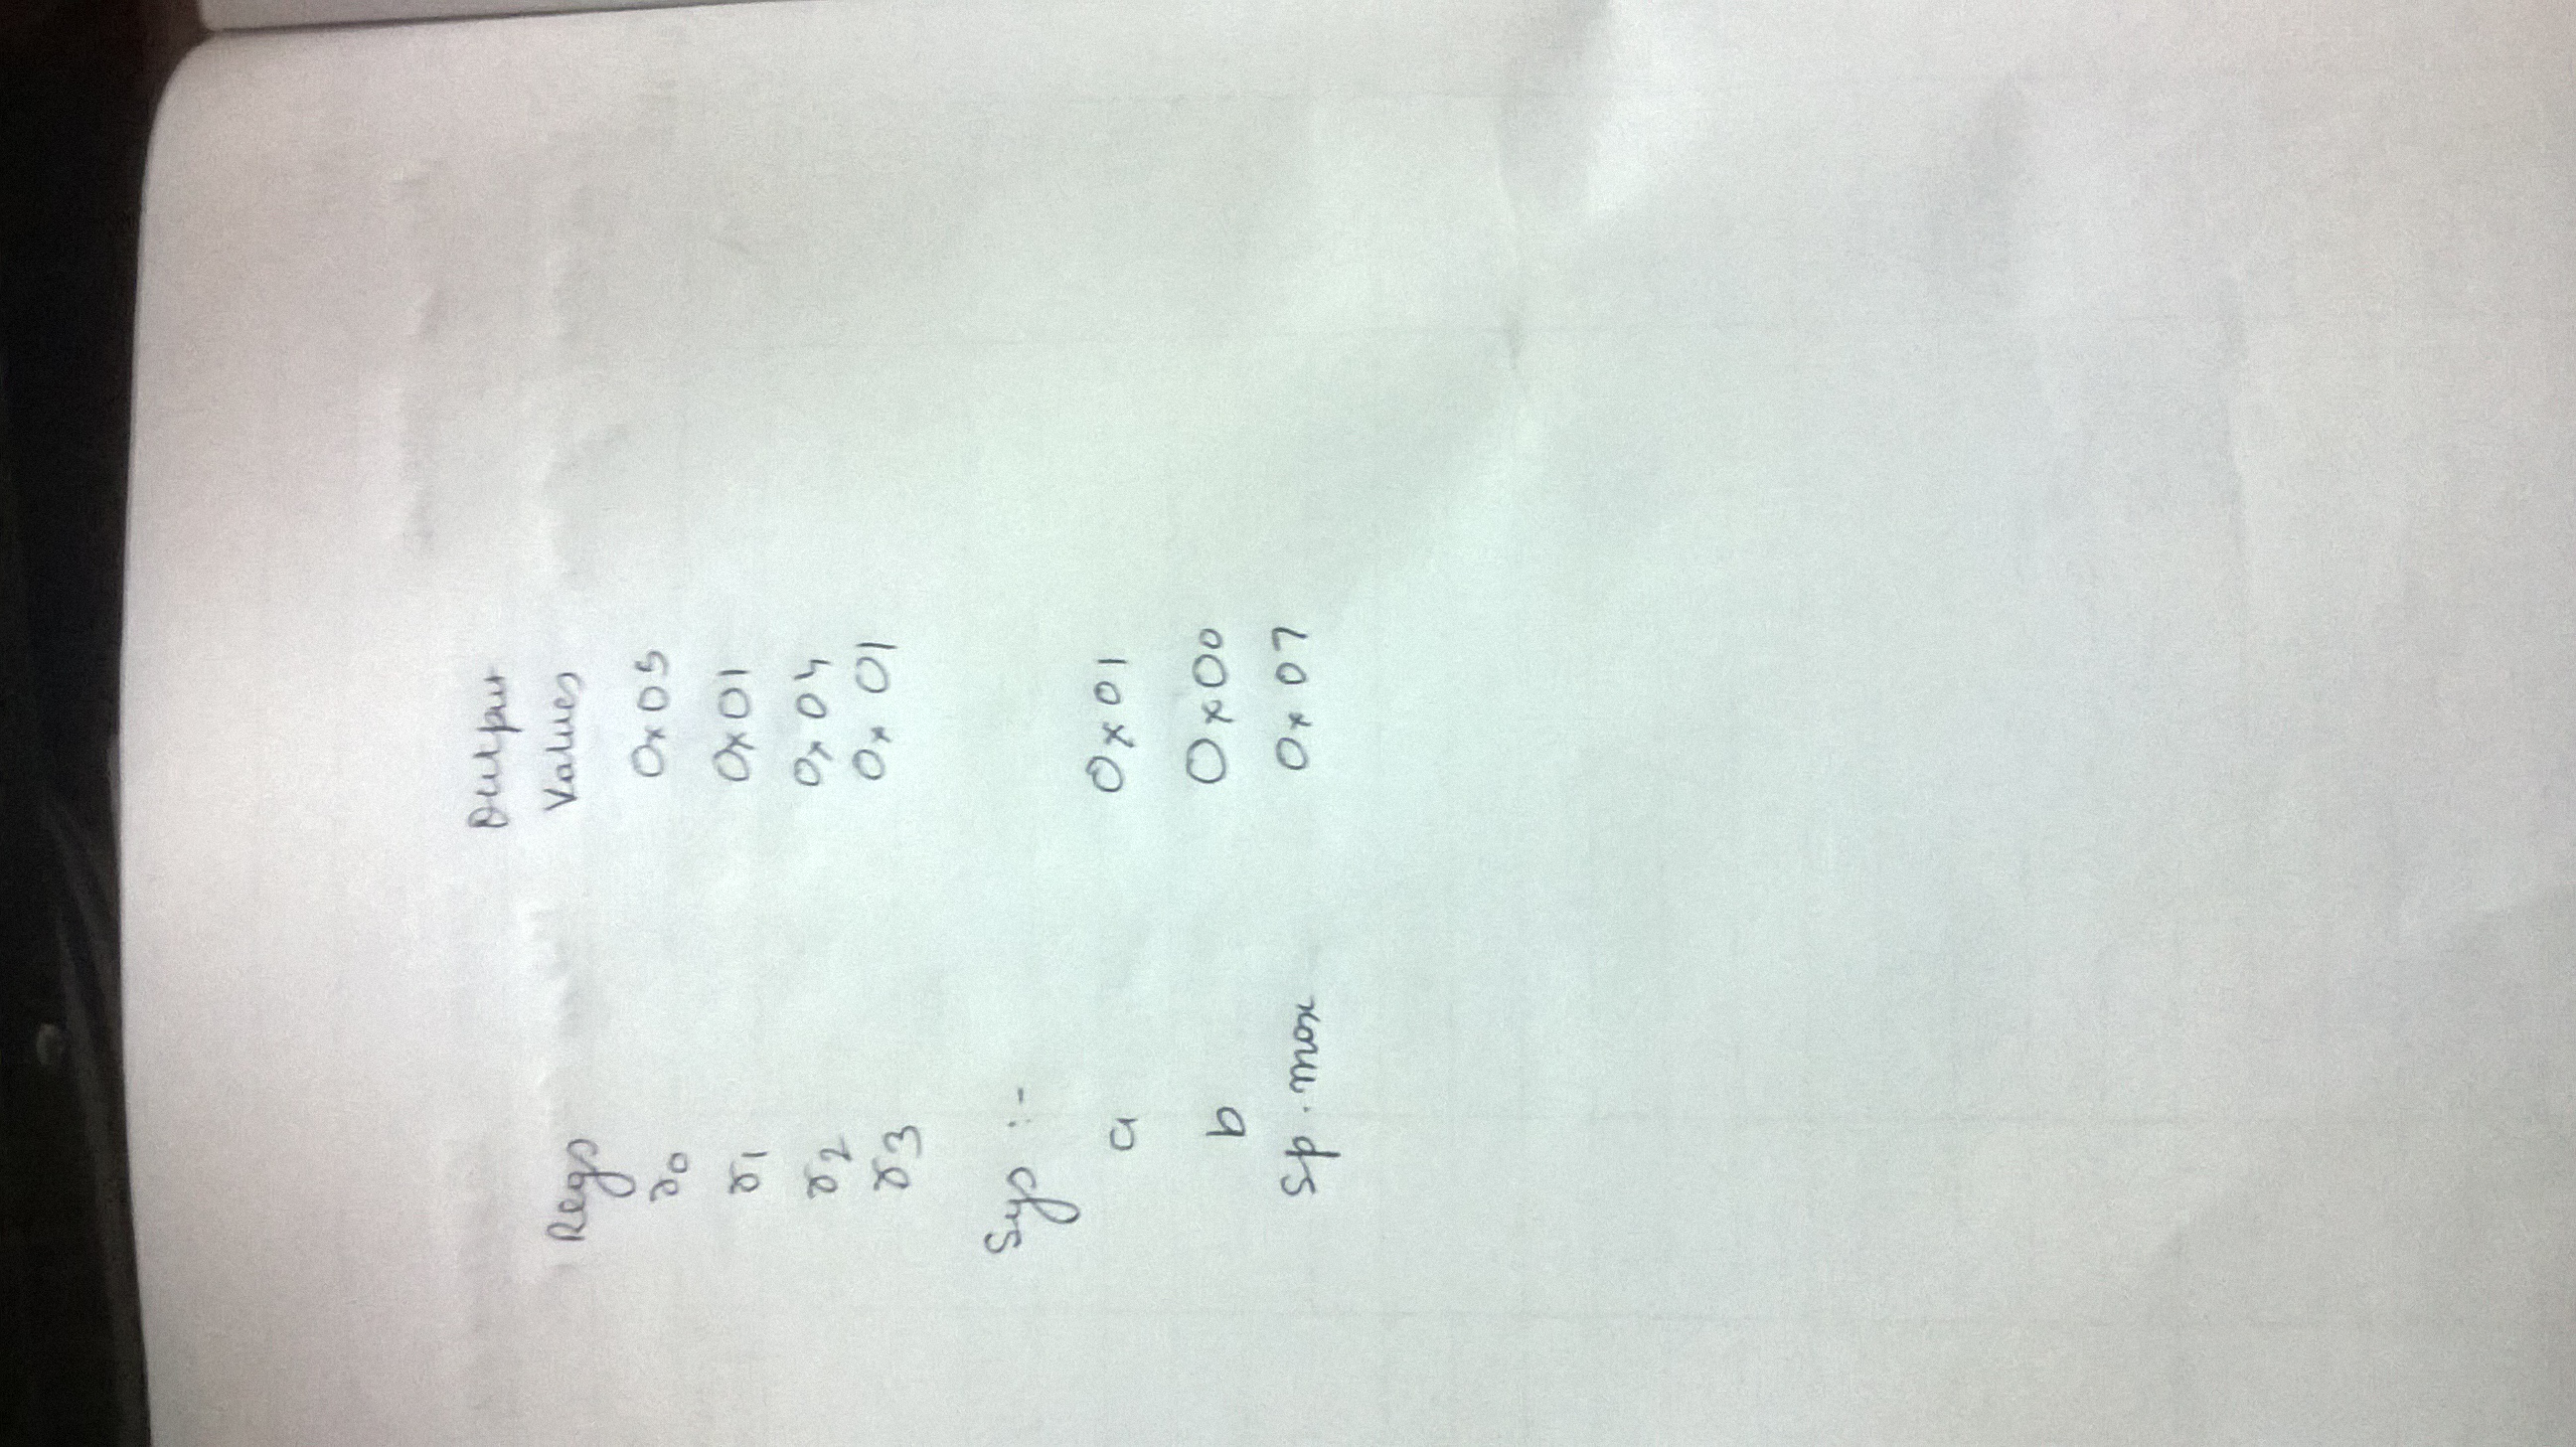 Output
Regs Values
r0 0x05
r1 0x01
r2 0x04
r3 0x01
Sys :-
a 0x01
b 0x00
sp.max 0x07